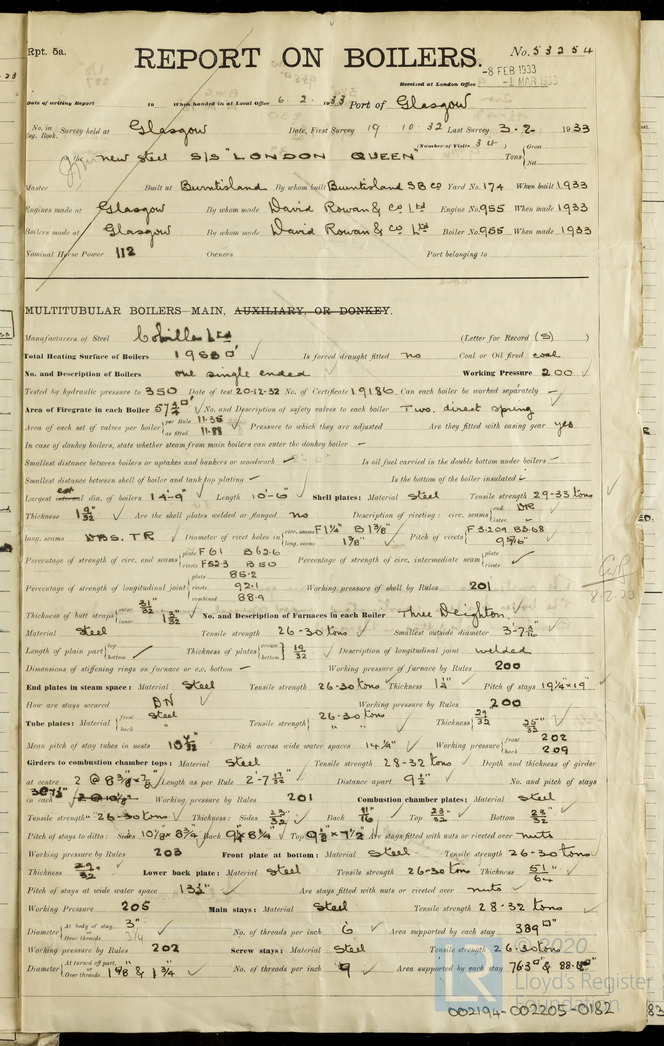 Rpt. 5a.
REPORT ON BOILERS.
No. 53254
-8 FEB 1933
Received at London Office -1 MAR 1933
Date of writing Report 19 When handed in at Local Office 6. 2. 1933 Port of Glasgow
No. in Reg. Book. Survey held at Glasgow Date, First Survey 19 10 32 Last Survey 3.2 1933
(Number of Visits 34)
on the new steel S/S "LONDON QUEEN" Tons { Gross Net
Master Built at Burntisland By whom built Burntisland SB Co Yard No. 174 When built 1933
Engines made at Glasgow By whom made David Rowan & Co Ltd Engine No. 955 When made 1933
Boilers made at Glasgow By whom made David Rowan & Co Ltd Boiler No. 955 When made 1933
Nominal Horse Power 112 Owners Port belonging to
MULTITUBULAR BOILERS MAIN, AUXILIARY, OR DONKEY.
Manufacturers of Steel Colvilles Ltd (Letter for Record (S) )
Total Heating Surface of Boilers Is forced draught fitted no Coal or Oil fired coal
No. and Description of Boilers one single ended Working Pressure 200
Tested by hydraulic pressure to 350 Date of test 20-12-32 No. of Certificate 19186 Can each boiler be worked separately —
Area of Firegrate in each Boiler No. and Description of safety valves to each boiler Two. direct spring
Area of each set of valves per boiler { per Rule 11.35 as fitted 11.88 Pressure to which they are adjusted Are they fitted with easing gear yes
In case of donkey boilers, state whether steam from main boilers can enter the donkey boiler —
Smallest distance between boilers or uptakes and bunkers or woodwork — Is oil fuel carried in the double bottom under boilers —
Smallest distance between shell of boiler and tank top plating — Is the bottom of the boiler insulated —
Largest ext internal dia. of boilers 14'-9" Length 10'-6" Shell plates: Material Steel Tensile strength 29-33 tons
Thickness 1 9/32 Are the shell plates welded or flanged no Description of riveting: circ. seams { end DR inter.
long. seams DBS. TR Diameter of rivet holes in { circ. seams F 1 1/4" B 1 3/8" long. seams 1 3/8" Pitch of rivets { F 3.209 B 3.68 9 5/16"
Percentage of strength of circ. end seams { plate F 61 B 62.6 rivets F 52.3 B 50 Percentage of strength of circ. intermediate seam { plate rivets
Percentage of strength of longitudinal joint { plate 85.2 rivets 92.1 combined 88.9 Working pressure of shell by Rules 201
Thickness of butt straps { outer 31/32 inner 1 3/32 No. and Description of Furnaces in each Boiler Three Deighton
Material Steel Tensile strength 26-30 tons Smallest outside diameter 3'-7 3/16"
Length of plain part { top bottom Thickness of plates { crown bottom 19/32 Description of longitudinal joint welded
Dimensions of stiffening rings on furnace or c.c. bottom — Working pressure of furnace by Rules 200
End plates in steam space: Material Steel Tensile strength 26-30 tons Thickness 1 1/4" Pitch of stays 19 1/4" x 19"
How are stays secured DN Working pressure by Rules 200
Tube plates: Material { front Steel back " Tensile strength { 26-30 tons " " Thickness { 29/32 25/32"
Mean pitch of stay tubes in nests Pitch across wide water spaces 14 1/4" Working pressure { front 202 back 209
Girders to combustion chamber tops: Material Steel Tensile strength 28-32 tons Depth and thickness of girder
at centre 2 @ 8 3/4" x 7/8" Length as per Rule 2'-7 17/32" Distance apart 9 1/2" No. and pitch of stays
in each Working pressure by Rules 201 Combustion chamber plates: Material Steel
Tensile strength 26-30 tons Thickness: Sides 23/32 Back 11/16 Top 23/32 Bottom 23/32
Pitch of stays to ditto: Sides 10 1/8" x 8 3/4" Back 9 1/4" x 8 3/4" Top 9 1/2" x 7 1/2" Are stays fitted with nuts or riveted over nuts
Working pressure by Rules 203 Front plate at bottom: Material Steel Tensile strength 26-30 tons
Thickness 29/32 Lower back plate: Material Steel Tensile strength 26-30 tons Thickness 51/64"
Pitch of stays at wide water space 13 1/2" Are stays fitted with nuts or riveted over nuts
Working Pressure 205 Main stays: Material Steel Tensile strength 28-32 tons
Diameter { At body of stay, 3" or Over threads 3 1/4 No. of threads per inch 6 Area supported by each stay 389 □"
Working pressure by Rules 202 Screw stays: Material Steel Tensile strength 26-30 tons
Diameter { At turned off part, or Over threads 1 5/8 & 1 3/4" No. of threads per inch 9 Area supported by each stay
© 2020
LR
Lloyd's Register
Foundation
002194-002205-0182